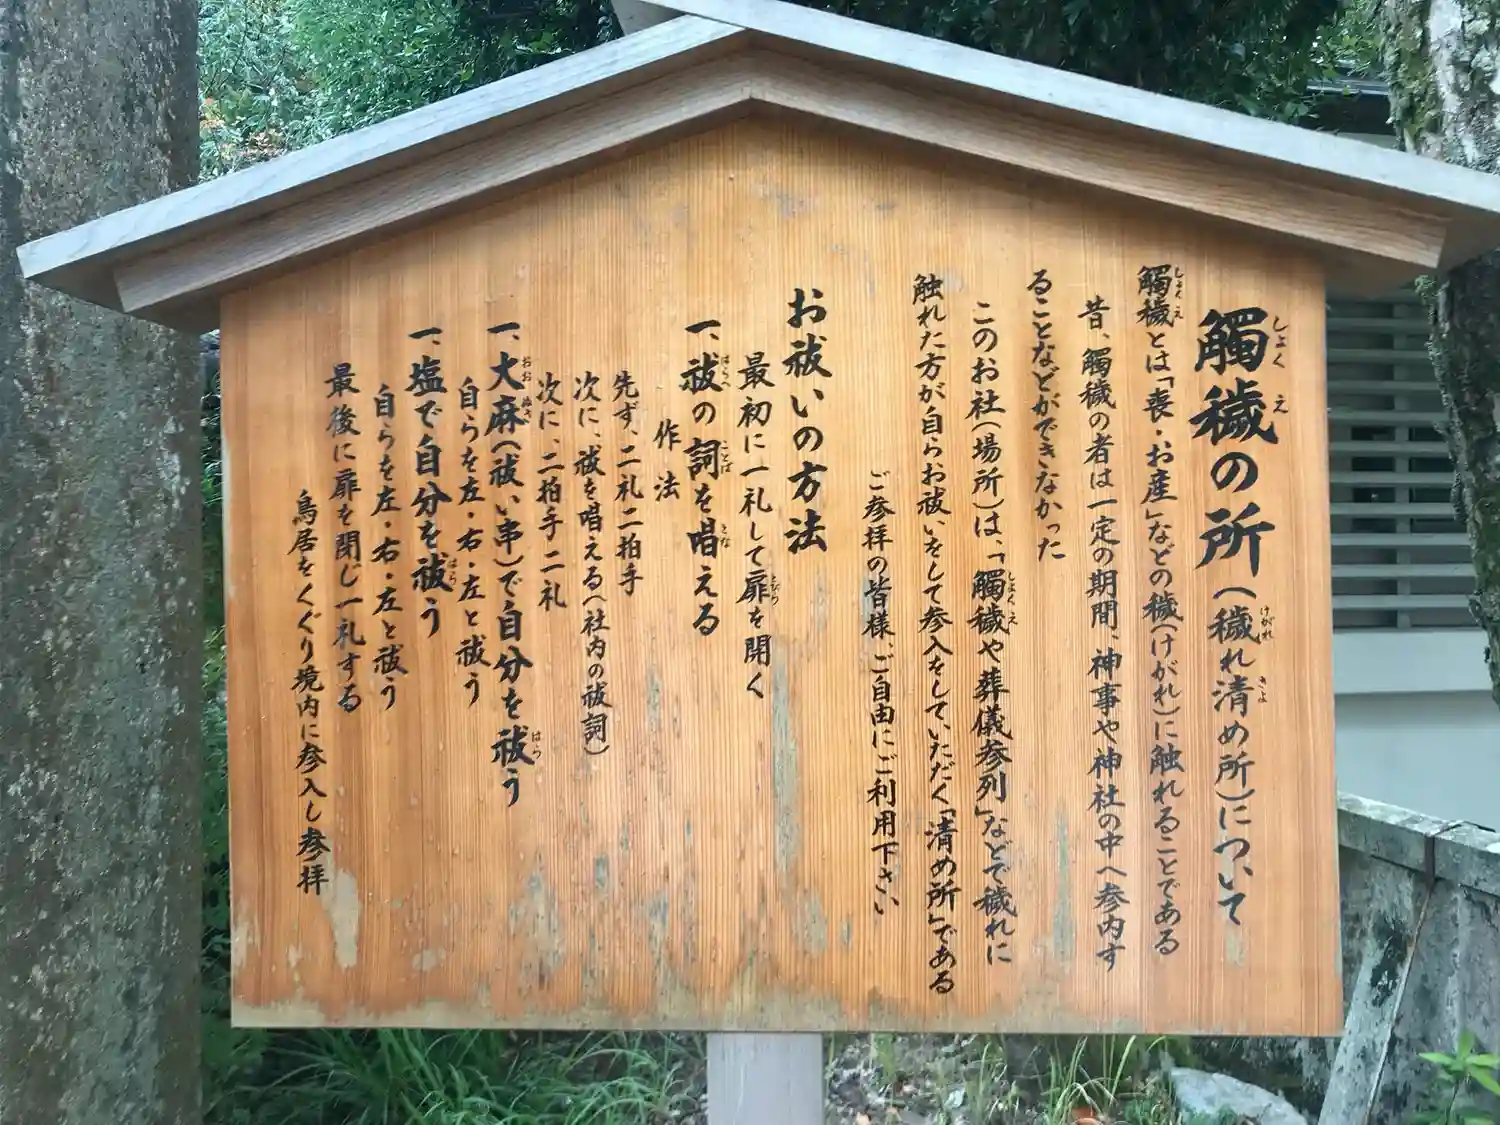 觸穢の所(穢れ清め所)について
觸穢とは「喪・お産」などの穢(けがれ)に触れることである
昔、觸穢の者は一定の期間、神事や神社の中へ参内す
ることなどができなかった
このお社(場所)は、「觸穢や葬儀参列」などで穢れに
触れた方が自らお祓いをして参入をしていただく「清め所」である
ご参拝の皆様、ご自由にご利用下さい
お祓いの方法
最初に一礼して扉を開く
一、祓の詞を唱える
作法
先ず、二礼二拍手
次に、祓を唱える(社内の祓詞)
次に、二拍手二礼
一、大麻(祓い串)で自分を祓う
自らを左・右・左と祓う
一、塩で自分を祓う
自らを左・右・左と祓う
最後に扉を閉じ一礼する
鳥居をくぐり境内に参入し参拝